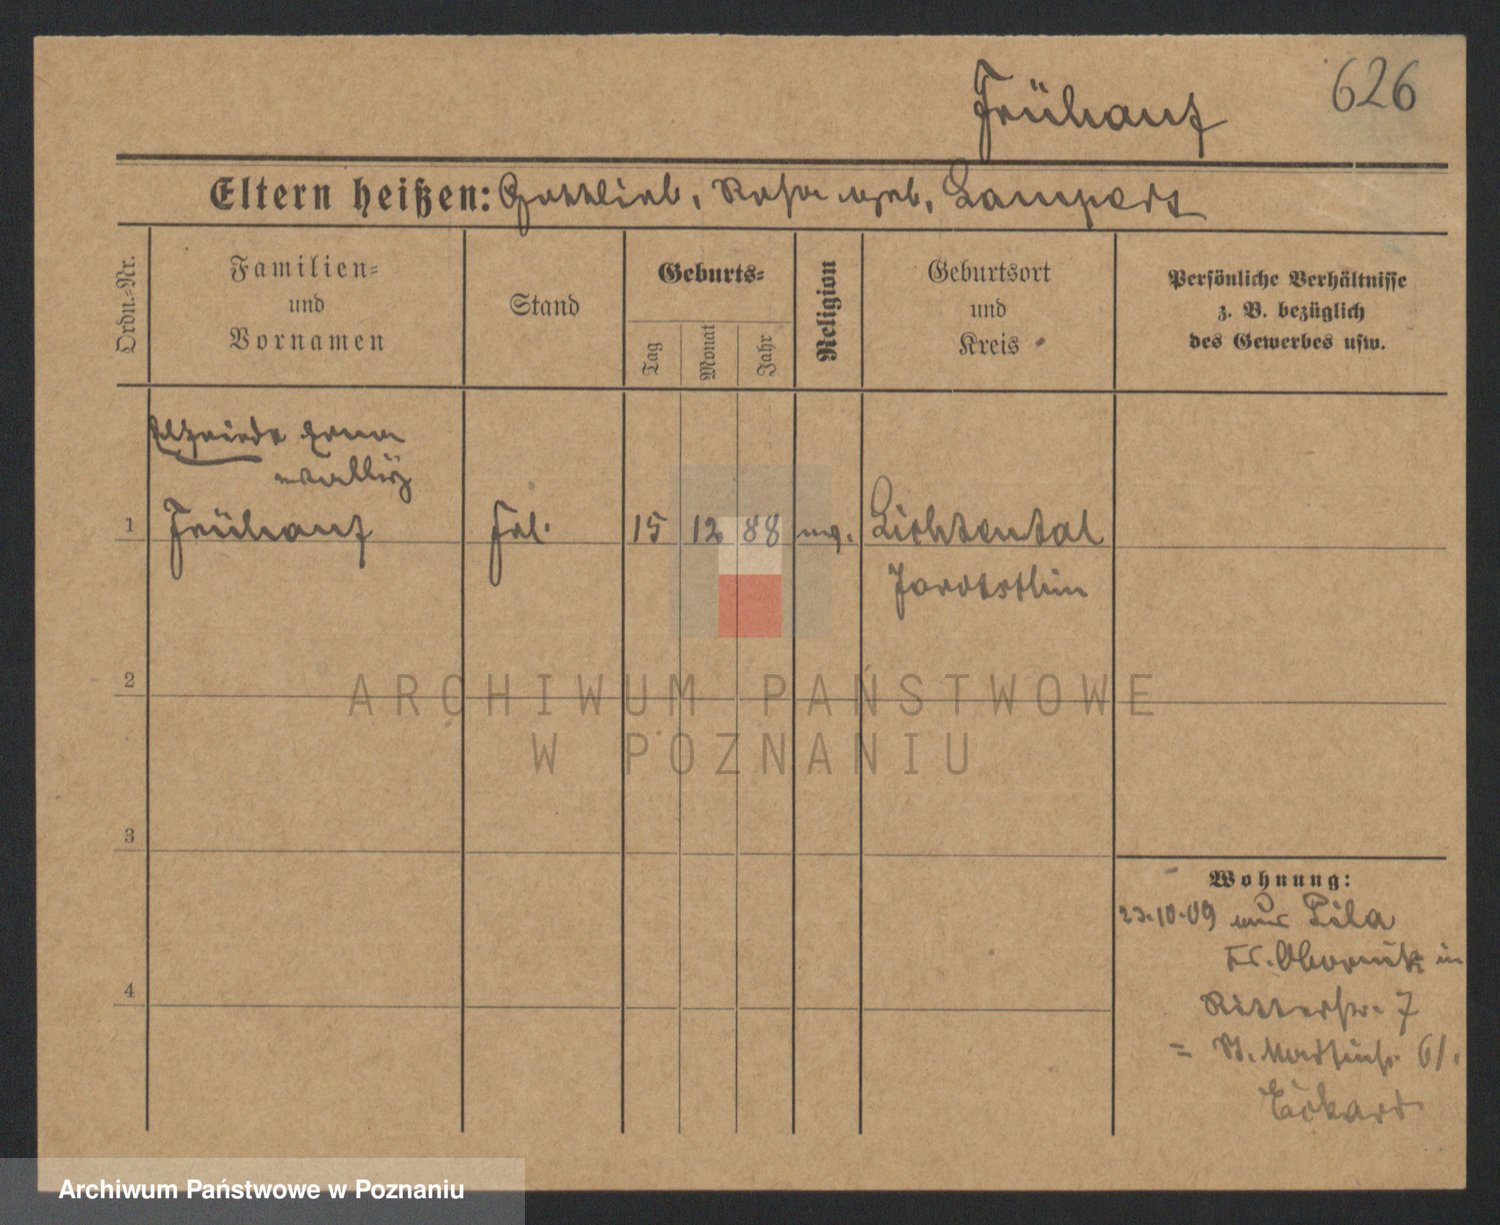 Frühauf 626
Eltern heißen: Gottlieb, Rosa geb. Lampert
Ordn.-Nr.
Familien-
und
Vornamen
Stand
Geburts-
Tag
Monat
Jahr
Religion
Geburtsort
und
Kreis
Persönliche Verhältnisse
z. B. bezüglich
des Gewerbes usw.
Elfriede Erna
1 Frühauf Frl. 15 12 88 ev. Lichtental
2
3
4
Wohnung:
23.10.09 aus Pila
Kr. Obornik in
Ritterstr. 7
= St. Martinstr. 61.
Eckart
ARCHIWUM PAŃSTWOWE
W POZNANIU
Archiwum Państwowe w Poznaniu